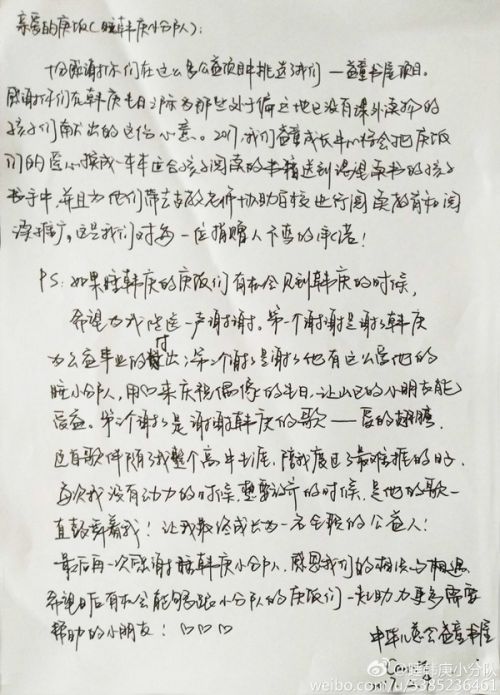 亲爱的庚饭(睡韩庚小分队):
十分感谢你们在这么多公益项目中挑选了我们——益童书屋项目。
感谢你们在韩庚生日之际为那些处于偏远地区没有课外读物的
孩子们献出的这份心意。2017,我们益童成长中心将会把庚饭
们的爱心换成一本本适合孩子阅读的书籍送到渴望读书的孩子
手中,并且为他们带去支教老师协助学校进行阅读教育和阅
读推广,这是我们对每一位捐赠人不变的承诺!
PS:如果睡韩庚的庚饭们有机会见到韩庚的时候,
希望为我陇送一声谢谢。第一个谢谢是谢谢韩庚
为公益事业的付出;第二个谢谢是谢谢他有这么爱他的
睡小分队,用心来庆祝偶像的生日,让山区的小朋友能
受益。第三个谢谢是谢谢韩庚的歌——爱的翅膀,
这首歌伴随了我整个高中生涯,陪我度过了最难捱的日子。
每次我没有动力的时候,想要放弃的时候,是他的歌一
直鼓舞着我!让我最终成长为一名全职的公益人!
最后再一次感谢睡韩庚小分队,感恩我们的相识与相遇
希望日后有机会能够跟小分队的庚饭们一起助力更多需要
帮助的小朋友!♡♡♡
中华儿慈会益童书屋
@睡韩庚小分队
weibo.com/u/5385236461